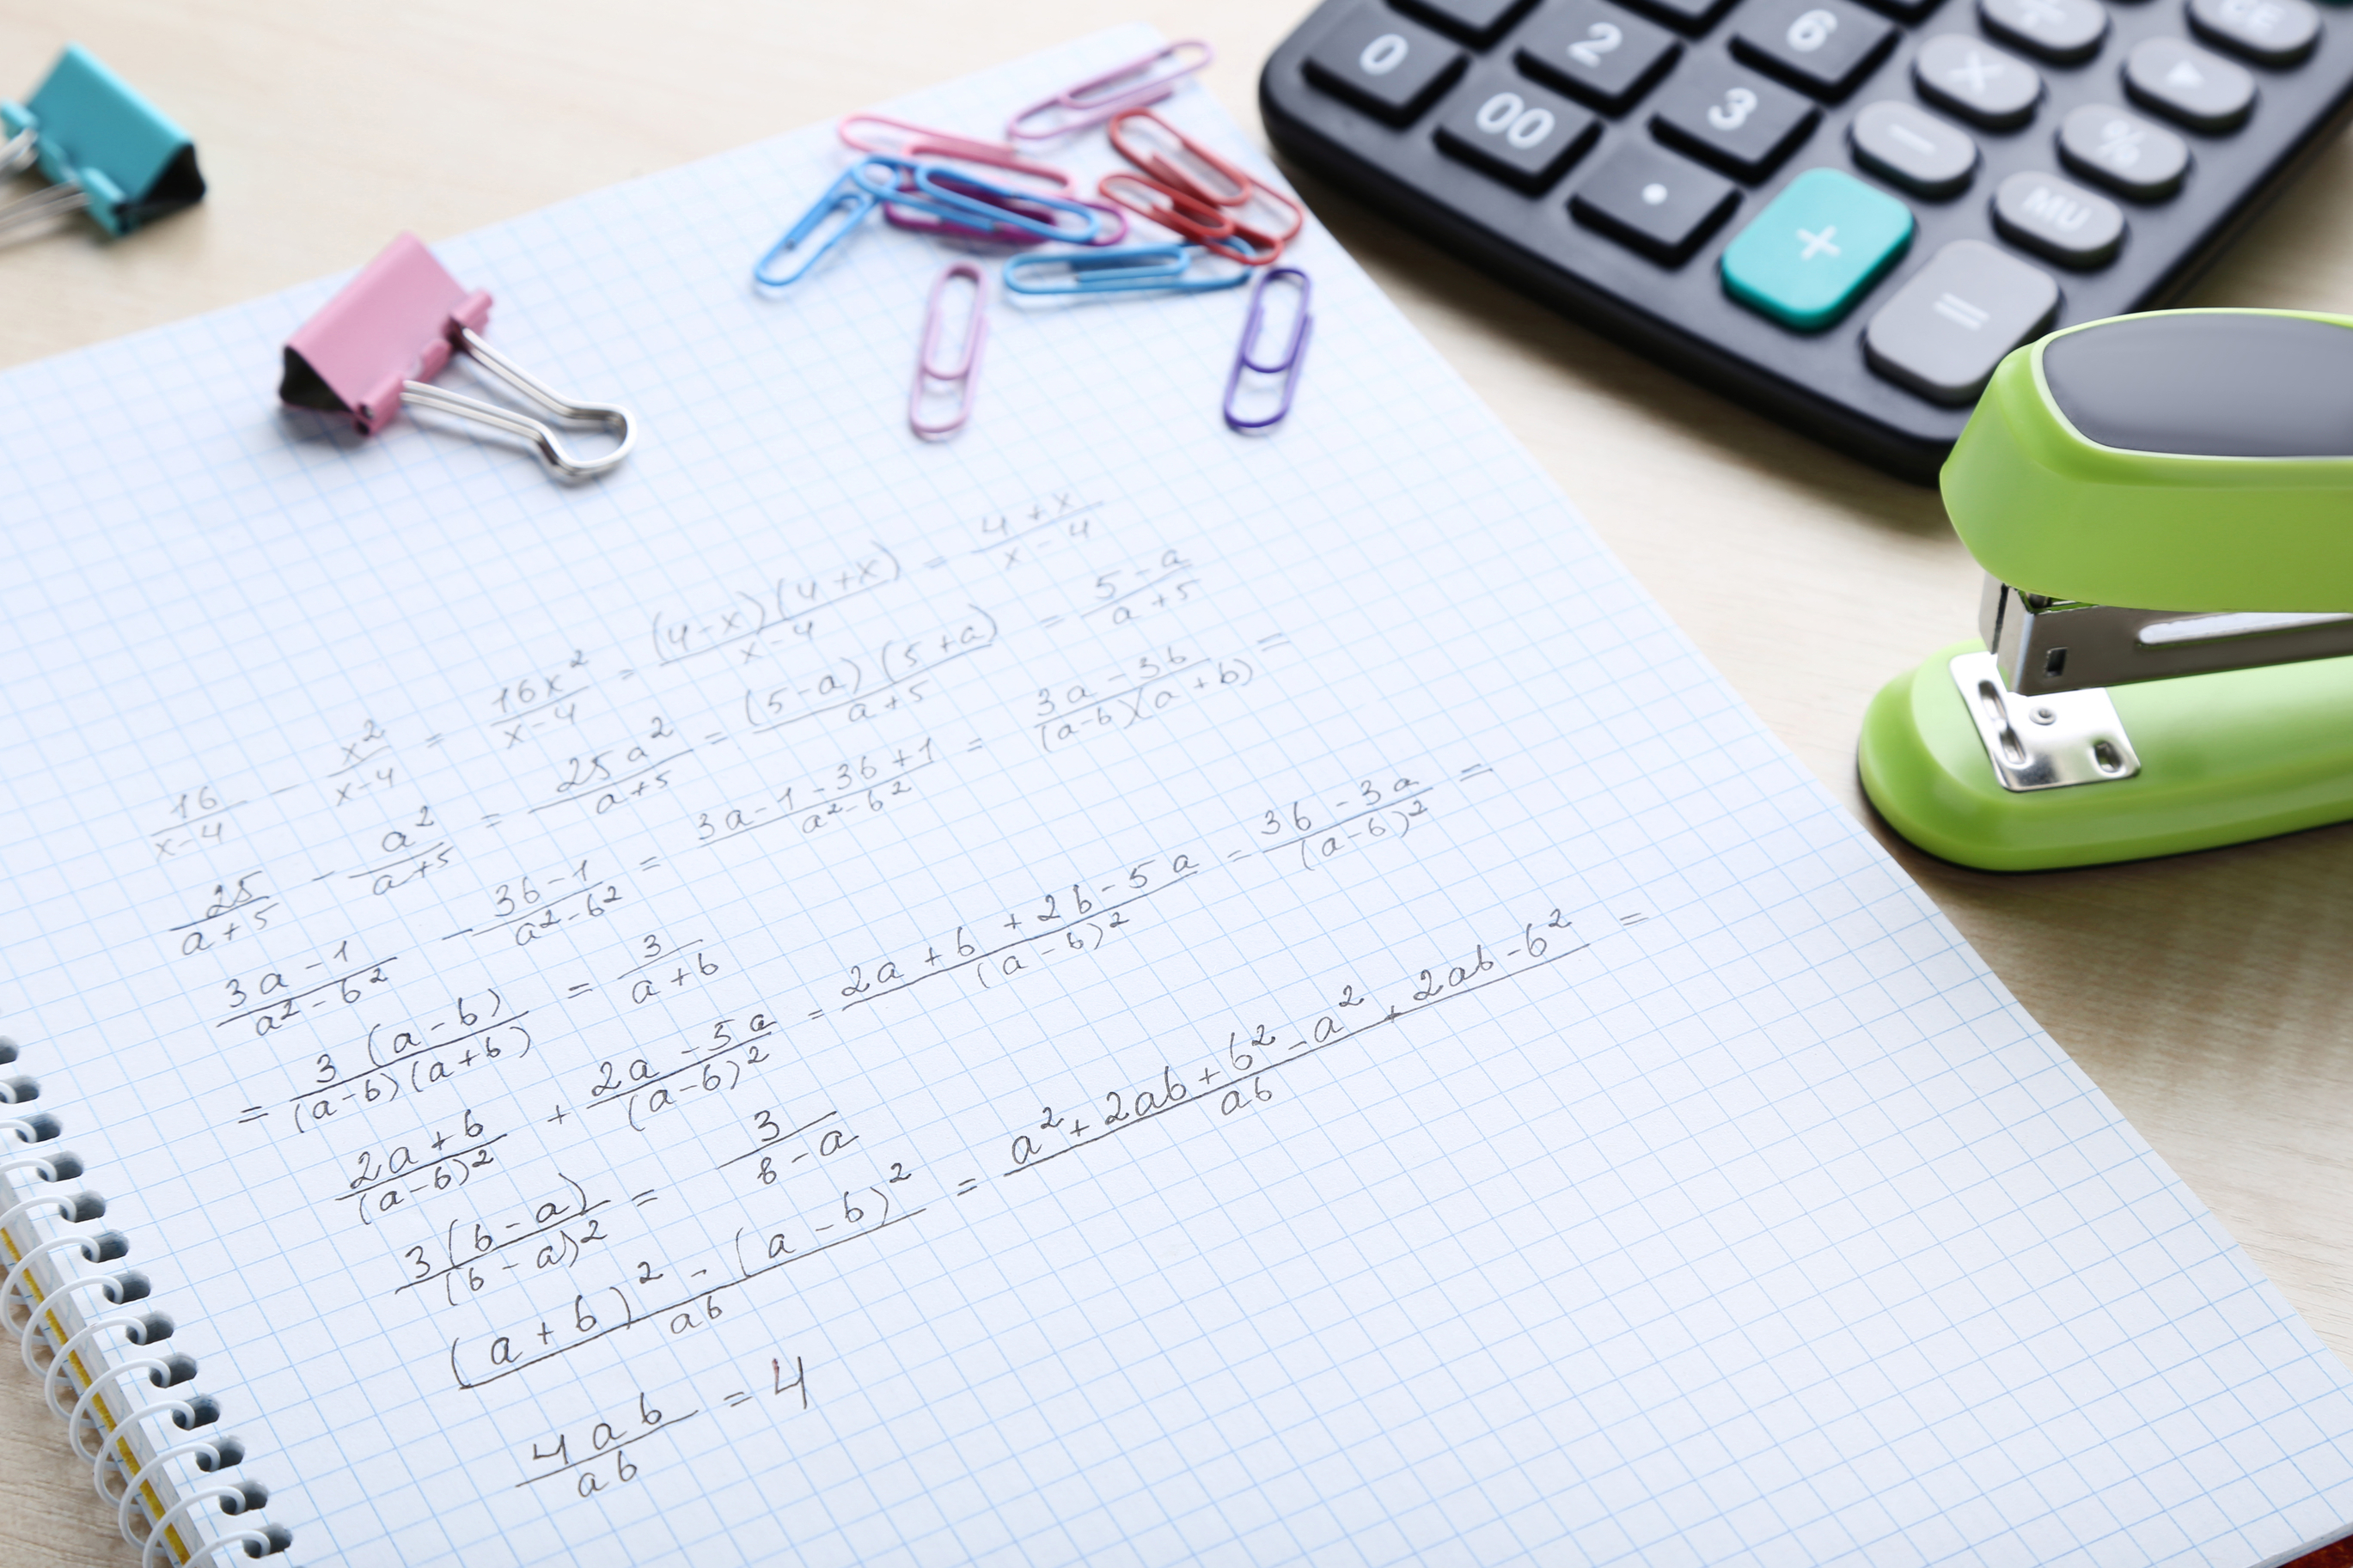 0 2 6 ÷ CE
00 3 × ▶
. − %
+ MU
=
16/(x-4) - x²/(x-4) = 16x²/(x-4) = (4-x)(4+x)/(x-4) = (4+x)/(x-4)
25/(a+5) - a²/(a+5) = 25a²/(a+5) = (5-a)(5+a)/(a+5) = (5-a)/(a+5)
(3a-1)/(a²-b²) - (3b-1)/(a²-b²) = (3a-1-3b+1)/(a²-b²) = (3a-3b)/((a-b)(a+b)) =
= 3(a-b)/((a-b)(a+b)) = 3/(a+b)
(2a+b)/(a-b)² + (2a-5a)/(a-b)² = (2a+b+2b-5a)/(a-b)² = (3b-3a)/(a-b)² =
3(b-a)/(b-a)² = 3/(8-a)
((a+b)²-(a-b)²)/ab = (a²+2ab+b²-a²+2ab-b²)/ab =
4ab/ab = 4